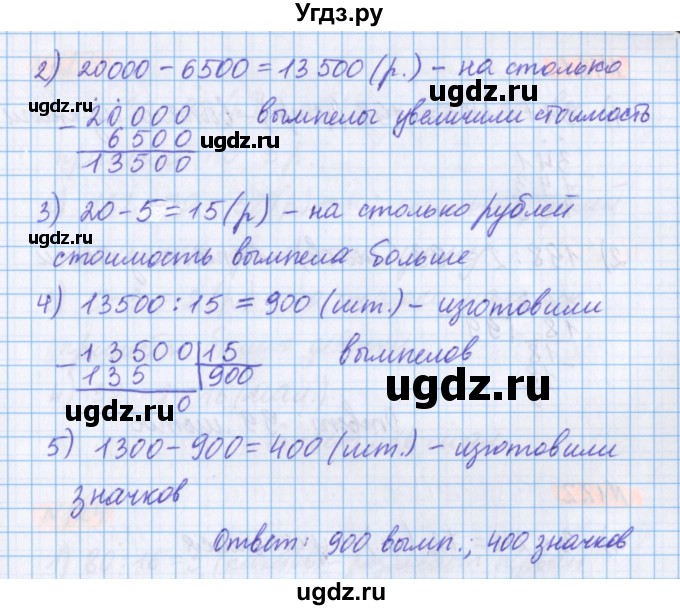 Угдз.ру
2) 20000 - 6500 = 13 500 (р.) - на столько
угдз.ru
ugdz.ru
- 20000 вымпелы увеличили стоимость
6500 ugdz.ru
13500
3) 20 - 5 = 15 (р) - на столько рублей
ugdz.ru
стоимость вымпела больше
4) 13500 : 15 = 900 (шт.) - изготовили
- 13500 | 15 вымпелов
135 900
ugdz.ru
0
ugdz.ru
5) 1300 - 900 = 400 (шт.) - изготовили
значков
ugdz.ru
Ответ: 900 вымп.; 400 значков
ugdz.ru